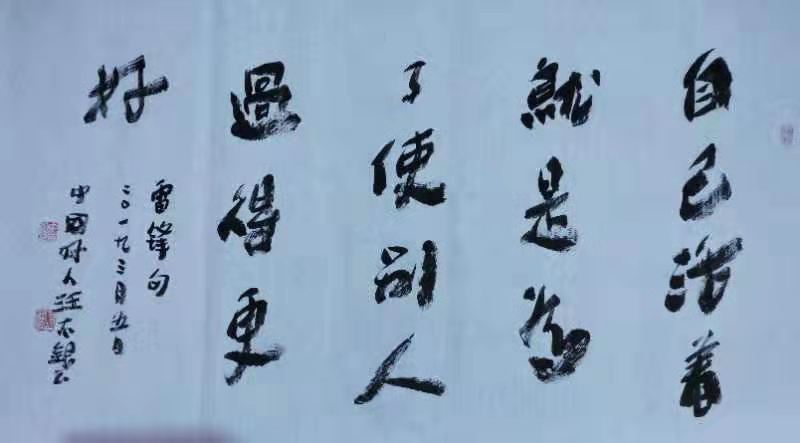 自己活着
就是为
了使别人
過得更
好
雷锋句
二〇一九三月五日
中國 人汪 銀